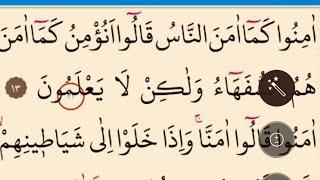 اٰمِنُوا كَمَٓا اٰمَنَ النَّاسُ قَالُٓوا اَنُؤْمِنُ كَمَٓا اٰمَنَ
هُمُ وَلٰكِنْ لَا يَعْلَمُونَ ١٣
اٰمَنُوا قَالُٓوا اٰمَنَّاۚ وَاِذَا خَلَوْا اِلٰى شَيَاطٖينِهِمْۙ